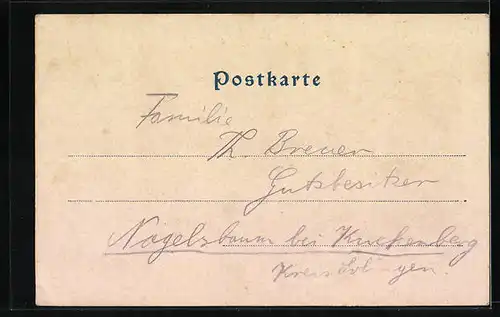 Postkarte
Familie
Th. Breuer
Gutsbesitzer
Nagelsbaum bei Kuckenberg
Kreis